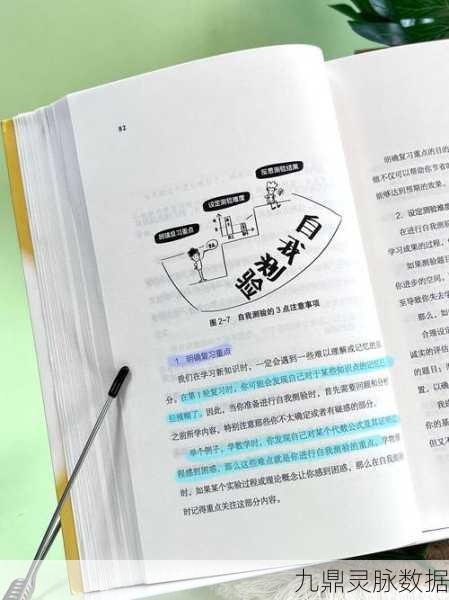 82
反思测验结果
设定测验难度
明确复习重点
自我测验
图 2-7 自我测验的 3 点注意事项
1. 明确复习重点
我们在学习新知识时，一定会遇到一些难以理解或记忆的部
分。在第 1 轮复习时，你可能会发现自己对于某些知识点的记忆已
经模糊了。因此，当你准备进行自我测验时，首先需要回顾和分析
之前所学内容，特别注意那些你不太确定或者有疑惑的部分。
举个例子，学数学时，你发现自己对某个代数公式及其证明过
程感到困惑，那么这些难点就是你进行自我测验的重点。学物理
时，如果某个实验过程或理论概念让你感到困惑，那么在自我测验
时记得重点关注这部分内容。
明确复习重点的目的
仅可以帮助你节省时
能够达到预期的效果。
2. 设定测验难度
在进行自我测
学习成果的过程，
如果测验题目
你进步的空间，
至导致你失去学
那么，如
合理设
诚实的评估
的题目；
置，以确
和
但又不
九鼎灵脉数据